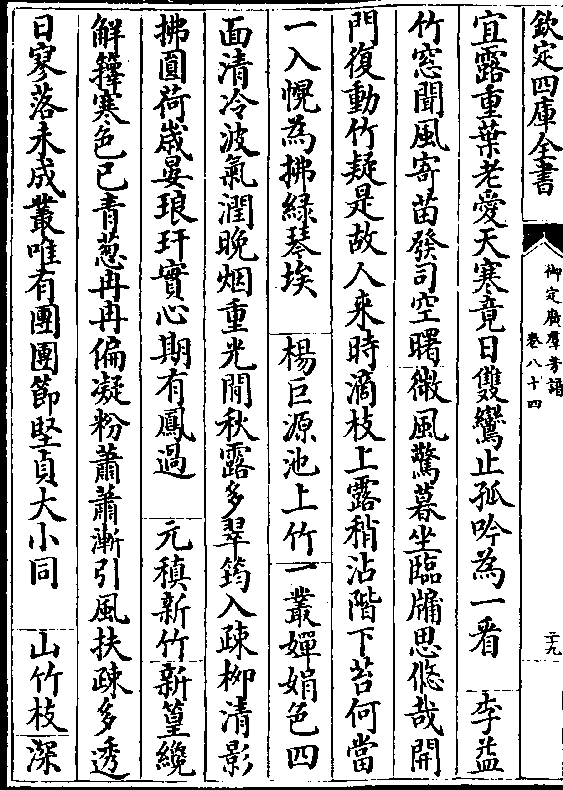 欽定四庫全書
御定廣羣芳譜
卷八十四
二十九
宜露重葉老愛天寒竟日雙鸞止孤吟為一看 李益
竹窓聞風寄苗發司空曙微風驚暮坐臨牖思悠哉開
門復動竹疑是故人来時滴枝上露稍沾階下苔何當
一入幌為拂緑琴埃 楊巨源池上竹一叢嬋娟色四
面清冷波氣潤晚烟重光閒秋露多翠筠入疎柳清影
拂圓荷歲晏琅玕實心期有鳳過 元稹新竹新篁纔
解籜寒色已青葱冉冉偏凝粉蕭蕭漸引風扶疎多透
日寥落未成叢唯有團團節堅貞大小同 山竹枝深